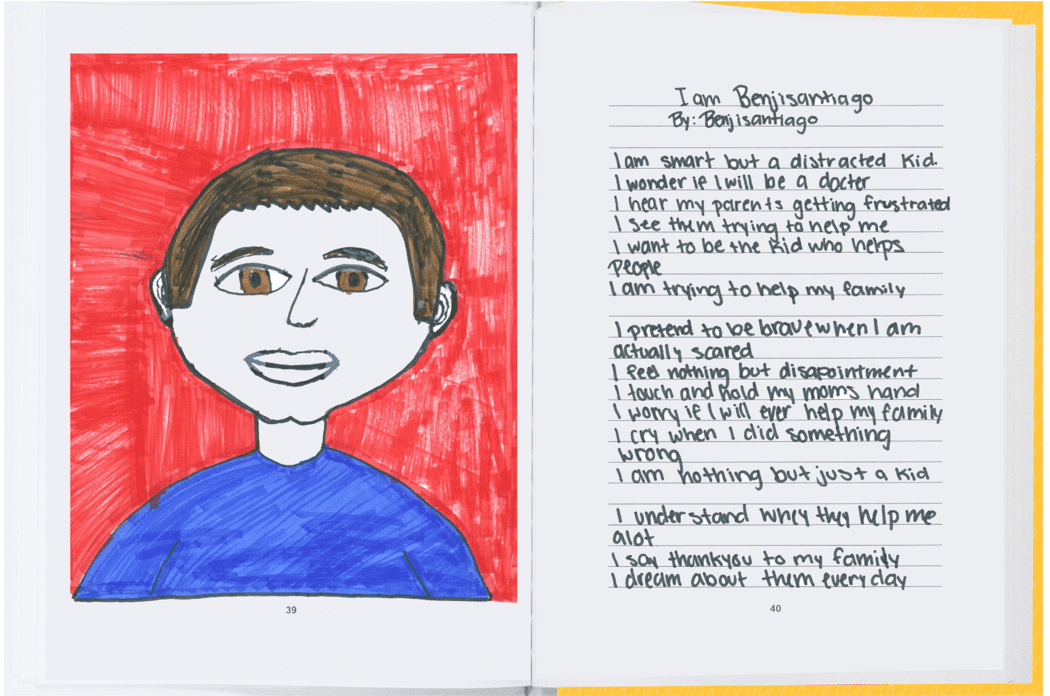 I am Benjisantiago
By: Benjisantiago
I am smart but a distracted kid.
I wonder if I will be a docter
I hear my parents getting frustrated
I see them trying to help me
I want to be the kid who helps
people
I am trying to help my family
I pretend to be brave when I am
actually scared
I feel nothing but disapointment
I touch and hold my moms hand
I worry if I will ever help my family
I cry when I did something
wrong
I am nothing but just a kid
I understand whey they help me
alot
I say thankyou to my family
I dream about them everyday
39
40